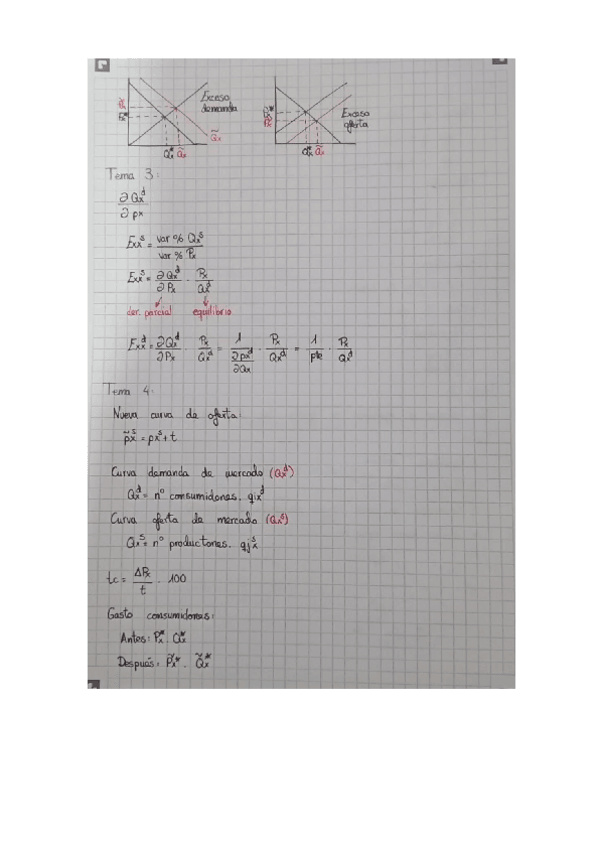 Exceso demanda
P̃x
Px*
Q̃x
Qx* Q̃x
Exceso oferta
Px*
P̃x
Qx* Q̃x
Tema 3:
∂Qx^d / ∂px
Exx^s = var % Qx^s / var % Px
Exx^s = ∂Qx^d / ∂Px · Px / Qx^d
der. parcial equilibrio
Exx^d = ∂Qx^d / ∂Px · Px / Qx^d = 1 / (∂px^d / ∂Qx) · Px / Qx^d = 1 / pte · Px / Qx^d
Tema 4:
Nueva curva de oferta:
p̃x^s = px^s + t
Curva demanda de mercado (Qx^d)
Qx^d = nº consumidores. qix^d
Curva oferta de mercado (Qx^s)
Qx^s = nº productores. qjx^s
tc = ΔPx / t · 100
Gasto consumidores:
Antes: Px* · Qx*
Después: P̃x* · Q̃x*